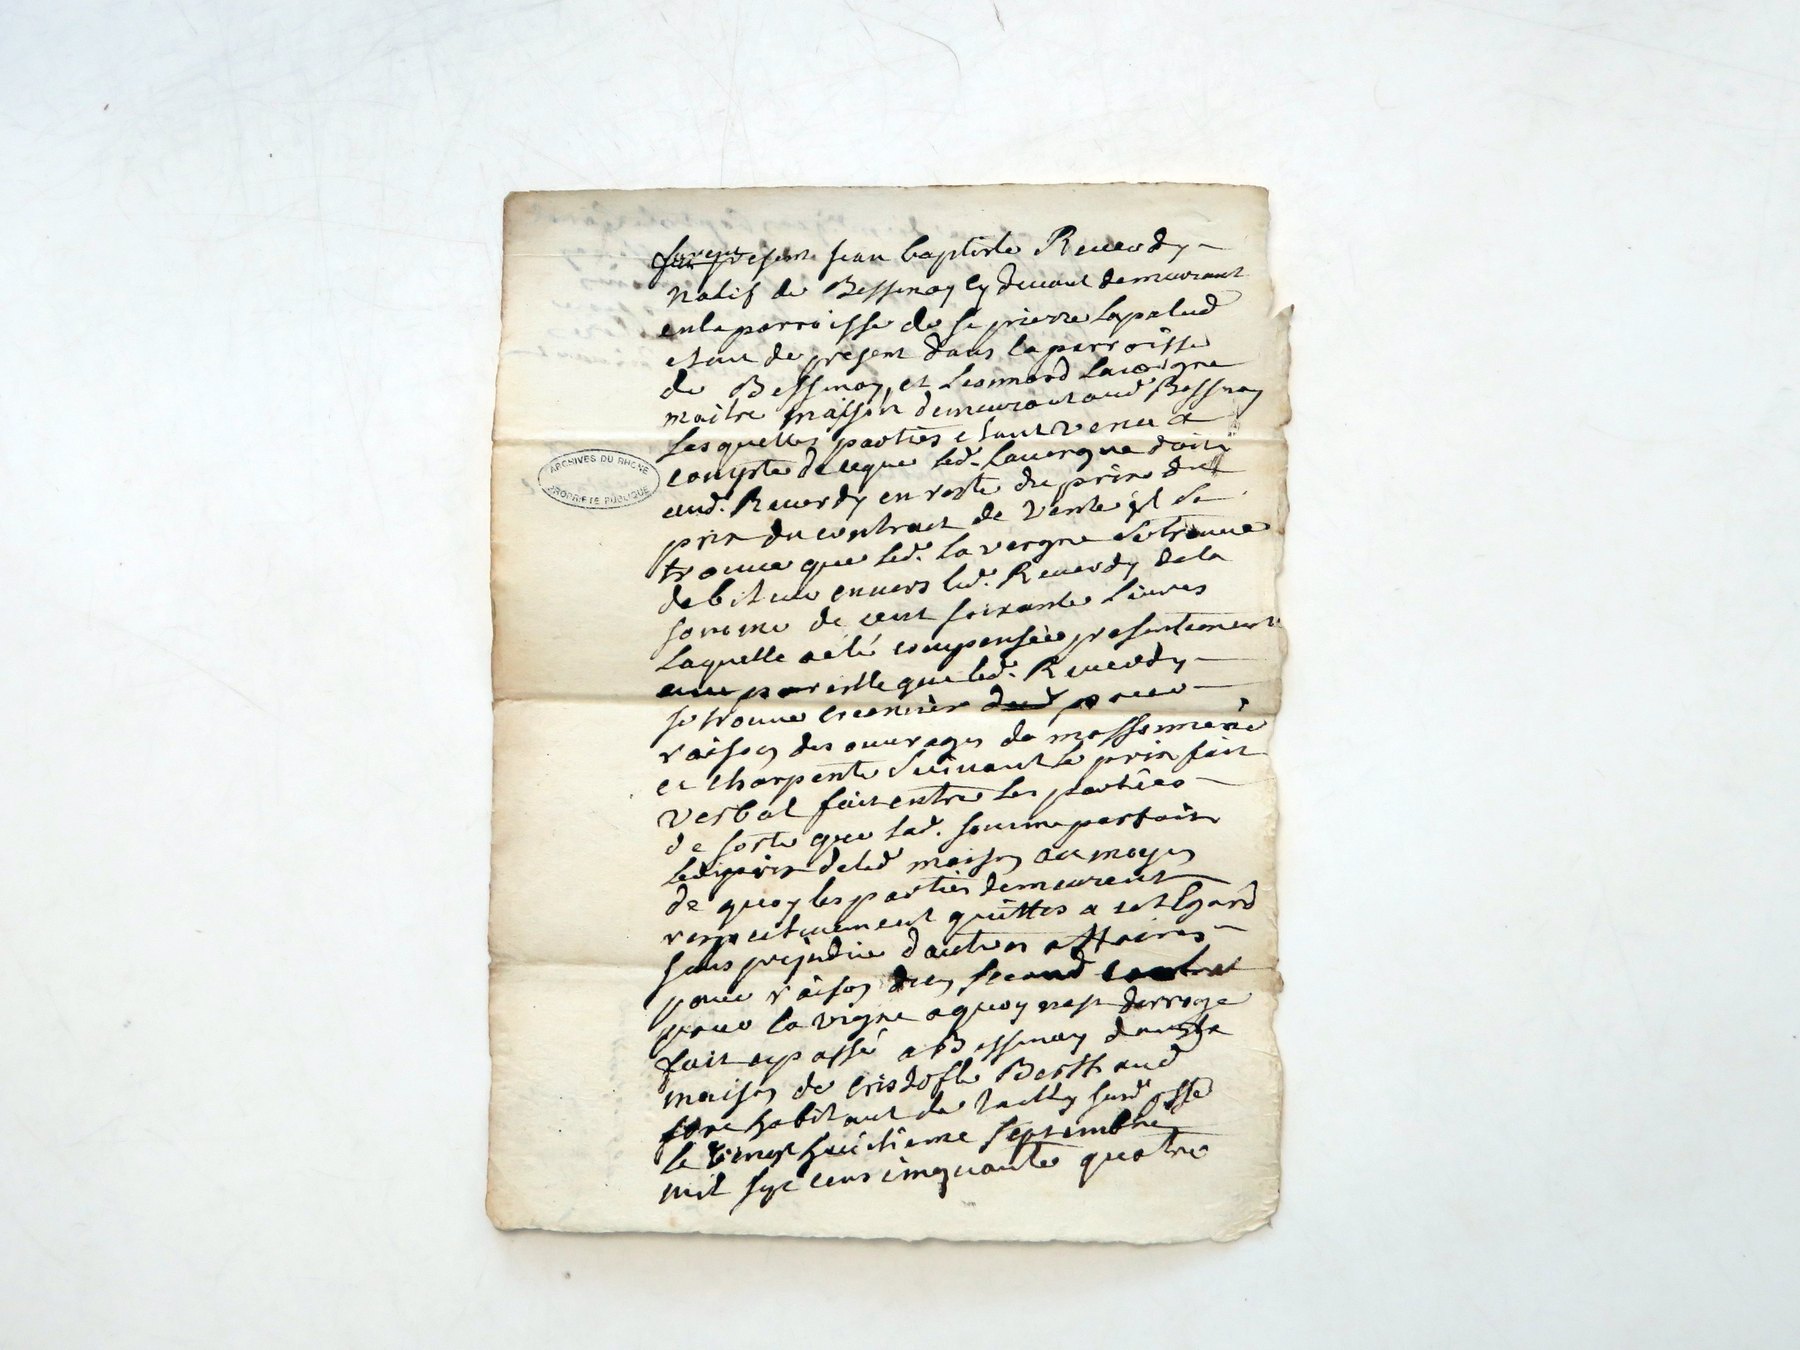 furent presens jean baptiste Reverdy
natif de Bessenay cy devant demeurant
en la parroisse de st pierre lapalud
estant de present dans la parroisse
de Bessenay, et Leonnard Lavergne
maitre masson demeurant aud Bessenay
Lesquelles parties estant venu a
compte de ceque led. Lavergne doit
aud. Reverdy en reste du prix du
prix du contract de vente il se
trouve que led. lavergne se trouve
debiteur envers led. Reverdy de la
somme de cent soixante livres
laquelle a eté compensée presentement
avec pareille que led. Reverdy
se trouve creancier pour
raison des ouvrages de massonnerie
et charpente suivant le prix fait
verbal fait entre les parties
de sorte que lad. somme parfait
led prix de lad maison au moyen
de quoy les parties demeurent
respectivement quittes a cet Egard
sans prejudice dautres affaires
pour raison dun second contrat
pour la vigne a quoy nest derroge
fait et passé a Bessenay dans la
maison de cristofle Berthaud
habitant de
le vingt huitieme septembre
mil sept cens cinquante quatre
ARCHIVES DU RHONE
PROPRIETE PUBLIQUE